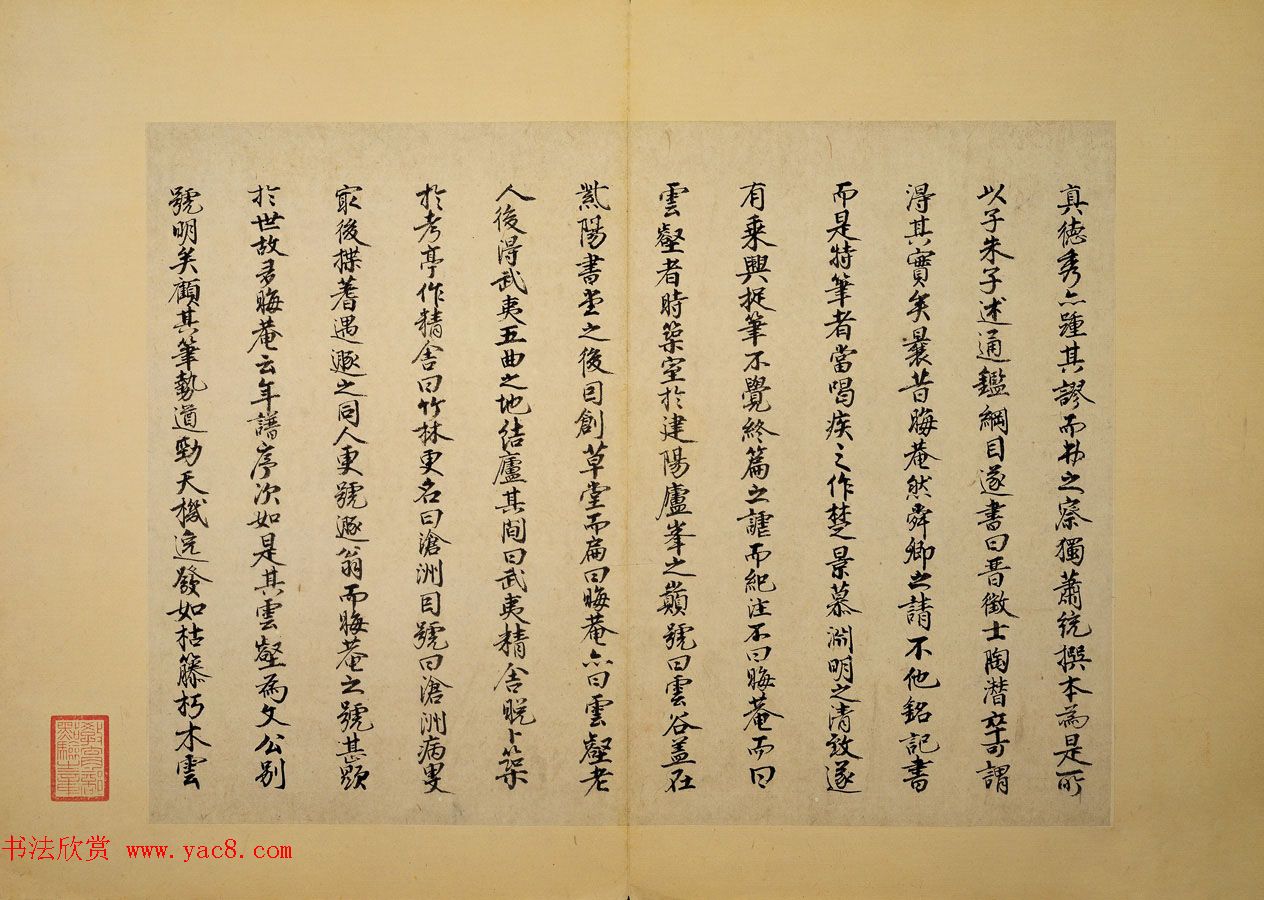 真德秀亦踵其謬而弗之察獨蕭統撰本為是所
以子朱子述通鑑綱目遂書曰晉徵士陶潛卒可謂
得其實矣曩昔晦菴然舜卿之請不他銘記書
而是特筆者當喝疾之作楚景慕淵明之清致遂
有乘興捉筆不覺終篇之謔而紀注不曰晦菴而曰
雲壑者時築室於建陽廬峯之巔號曰雲谷盖在
紫陽書堂之後因創草堂而扁曰晦菴亦曰雲壑老
人後得武夷五曲之地結廬其間曰武夷精舍晚卜築
於考亭作精舍曰竹林更名曰滄洲因號曰滄洲病叟
最後揲蓍遇遯之同人更號遯翁而晦菴之號甚顯
於世故多晦菴云年譜序次如是其雲壑為文公別
號明矣顧其筆勢遒勁天機逸發如枯籐朽木雲
书法欣赏 www.yac8.com